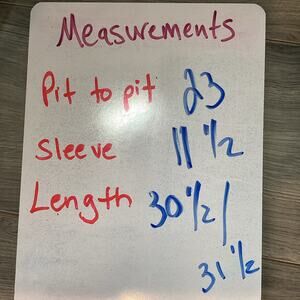 Measurements
Pit to pit 23
Sleeve 11 1/2
Length 30 1/2 /
31 1/2